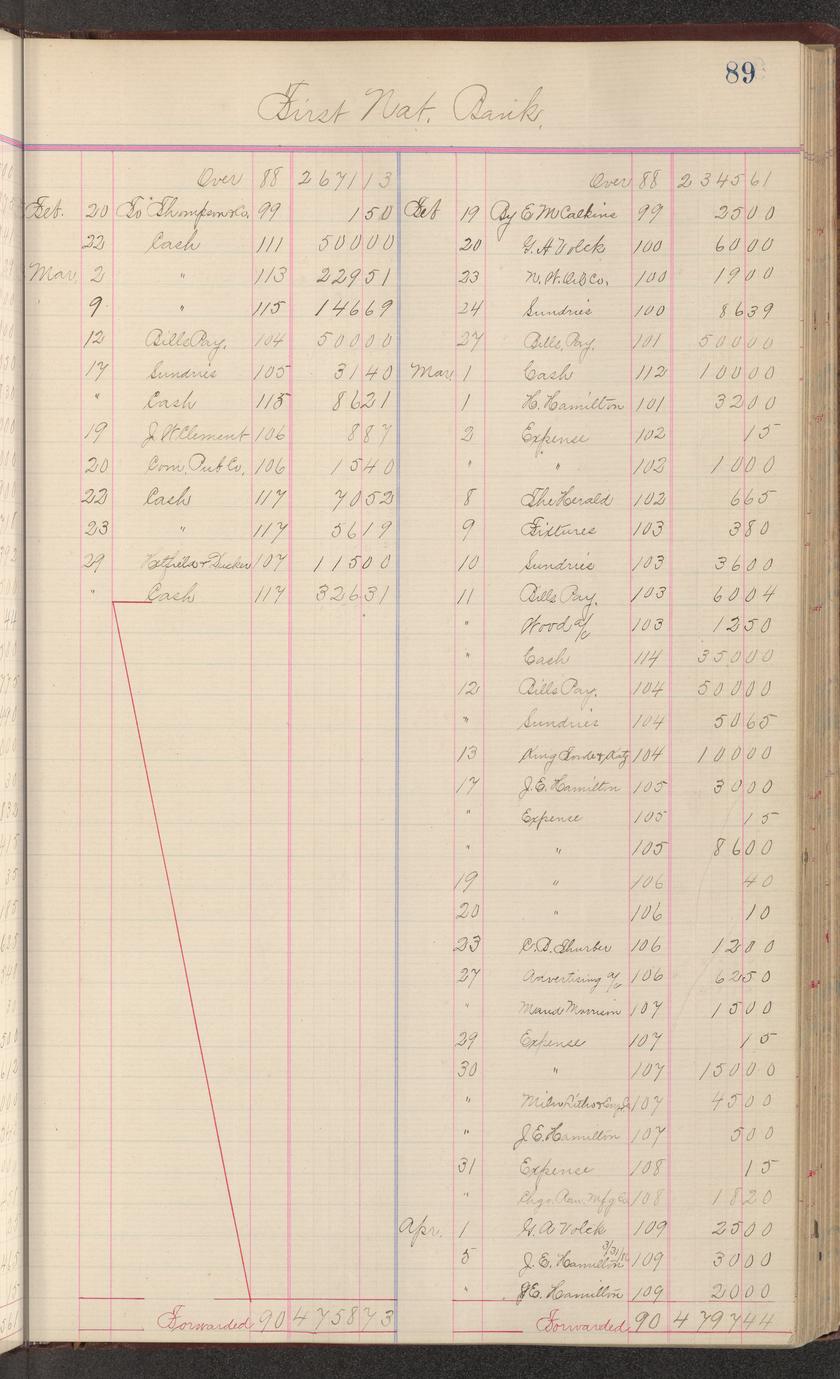 89
First Nat. Bank.
Over 88 2671 13
Feb. 20 To Thompson & Co. 99 1 50
22 Cash 111 500 00
Mar. 2 " 113 229 51
9 " 115 146 69
12 Bills Pay. 104 500 00
17 Sundries 105 31 40
" Cash 115 86 21
19 J. W. Clement 106 8 87
20 Com. Pub Co. 106 15 40
22 Cash 117 70 52
23 " 117 56 19
29 Hatfield & Ducker 107 115 00
" Cash 117 326 31
Forwarded 90 4758 73
Over 88 2345 61
Feb 19 By E M Calkins 99 25 00
20 G. A Volck 100 60 00
23 N. W. 100 19 00
24 Sundries 100 86 39
27 Bills, Pay. 101 500 00
Mar 1 Cash 112 100 00
1 H. Hamilton 101 32 00
2 Expense 102 15
" " 102 10 00
8 The Herald 102 6 65
9 Fixtures 103 3 80
10 Sundries 103 36 00
11 Bills Pay. 103 60 04
" Wood a/c 103 12 50
" Cash 114 350 00
12 Bills Pay. 104 500 00
" Sundries 104 50 65
13 King 104 100 00
17 J. E. Hamilton 105 30 00
" Expense 105 15
" " 105 86 00
19 " 106 40
20 " 106 10
23 C. B. Shurber 106 12 80
27 Advertising a/c 106 62 50
" Maud Morrison 107 15 00
29 Expense 107 15
30 " 107 150 00
" Milw Litho & Eng Co 107 45 00
" J. E. Hamilton 107 5 00
31 Expense 108 15
" Chgo. Mfg Co 108 18 20
Apr. 1 G. A Volck 109 25 00
5 J. E. Hamilton 3/31/11 109 30 00
" J E. Hamilton 109 20 00
Forwarded 90 4797 44